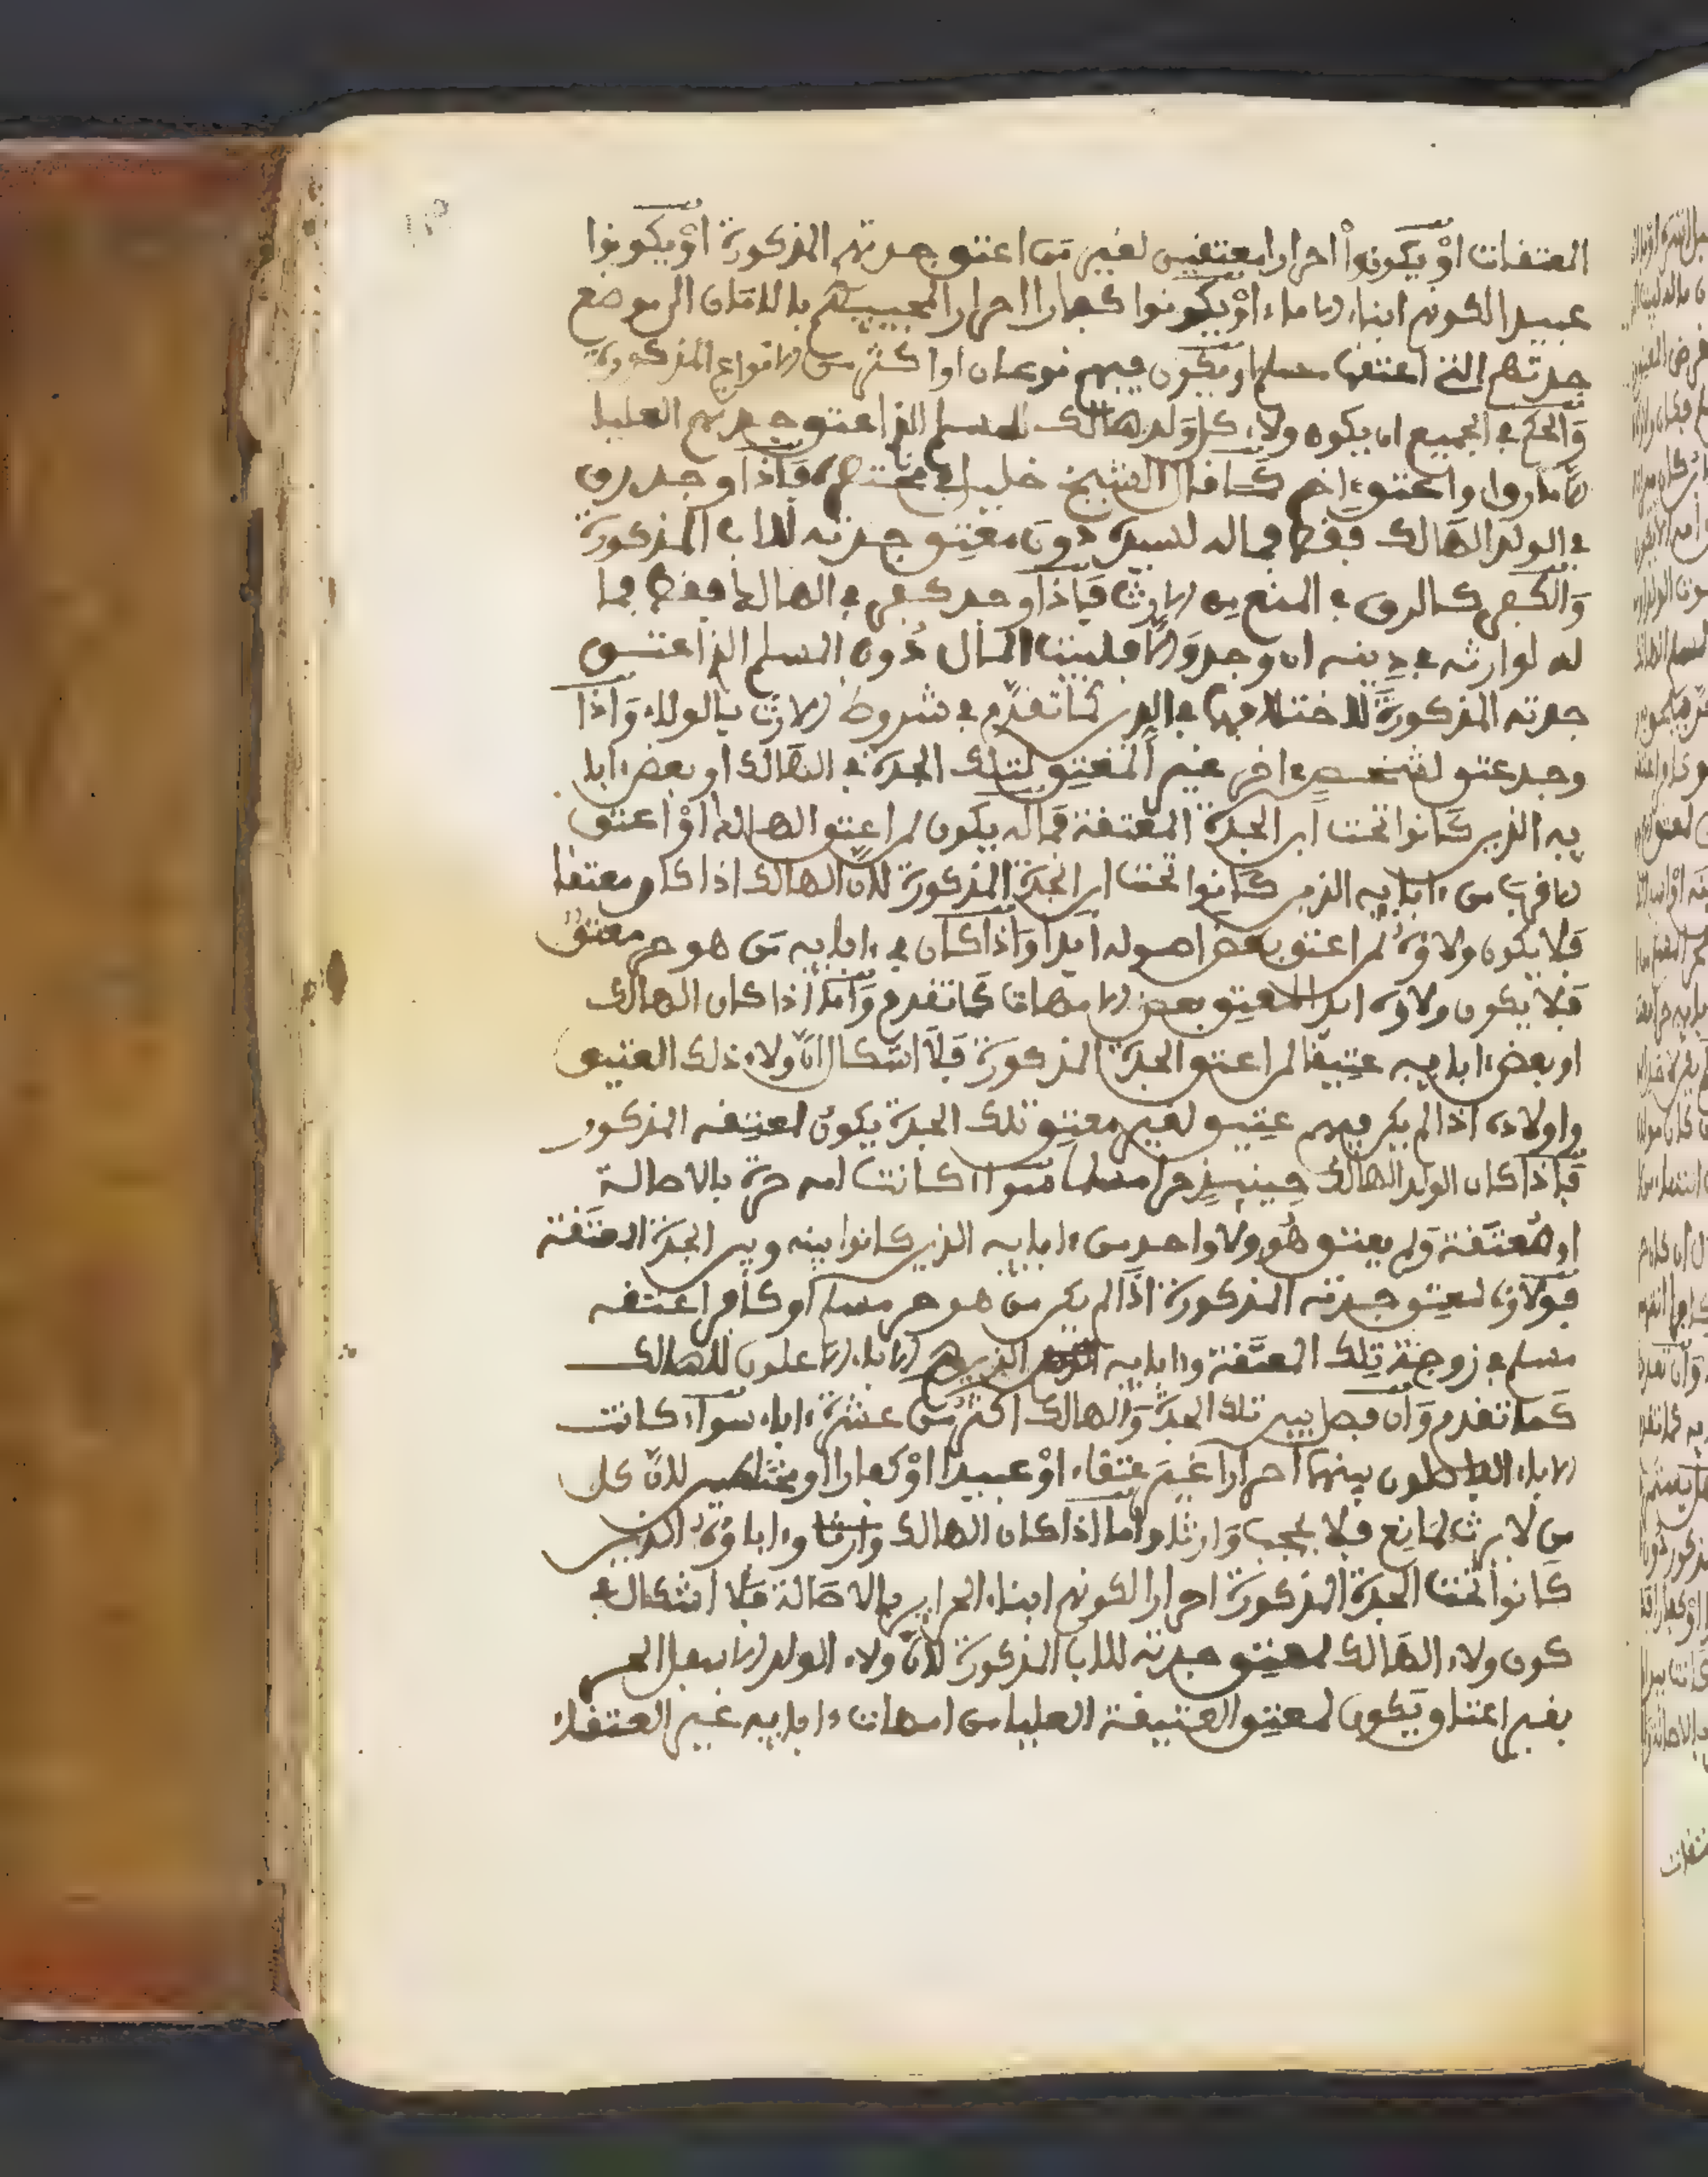 المعتقات اوْ يكونوا احرارا معتقين لغير مَن اعتق جدتهم المذكورة اوْ يكونوا
عبيدا لكونهم ابناء الاماء اوْ يكونوا كفارا احرارا لمجيبيهم بالامان الى موضع
جدتهم التي اعتقها مسلم او يكون فيهم نوعان او اكثر من الانواع المذكورة
وَالحكم في الجميع ان يكون ولاء كل وَلد هالك للمسلم الذي اعتق جدتهم العليا
الّا لرق او عتق ءاخر كما قال الشيخ خليل في مختصره فَاِذا وجد رق
في الولد الهَالك فقط فماله لسيده دونَ معتِق جدته للاب المذكورة
وَالكفر كالرق في المنع من الارث فَاِذا وجد كفر في الهالك فقط فما
له لوارثه في دِينه ان وجد وَالّا فلبيت المال دُون المسلم الذي اعتق
جدته المذكورة لاختلافهما في الدين كمَا تقدّم في شروط الارث بالولاء وَاذا
وجد عتق لشخص ءاخر غير المُعتِق لتلك الجدة في الهَالك او بعض ءابا
يه الذين كَانوا تحت ابن الجدة المعتقة فمَاله يكون لمن اعتق الهالك اوْ اعتق
الاقرب من ءابايه الذين كَانوا تحت ابن الجدة المذكورة لانّ الهالك اذا كان معتقا
فَلا يكون ولاؤهُ لمن اعتق بعض اصوله ابدا وَاذا كان في ءابايه مَن هو حر معتقٌ
فَلا يكون ولاؤه ابدا لمعتِق بعض الامهات كمَا تقدم وَامّا اذا كان الهالك
او بعض ءابايه عتِيقًا لمن اعتق الجدة المذكورة فَلَا اشكال انّ ولاء ذلك العتيق
واولاده اذا لم يكن فيهم عتِيق لغير معتِق تلك الجدة يكونُ لمعتِقه المذكور
فَاذا كان الولد الهالك حِينيذٍ حرا مسلما سَواء كانت امه حرة بالاصالة
او مُعتَقة وَلم يعتق هُو ولا واحد من ءابايه الذين كانوا بينه وبين الجدة المعتَقة
فولاؤه لمعتِق جدته المذكورة اذَا لم يكن من هو حر مسلم اوكَافر اعتقه
مسلم في زوجة تِلك المعتَقة وءابايه الذين هم الاباء الاعلون للهالك
كَما تقدم وَان فصل بين تلك الجدة وَالهالك اكثرُ مَن عشرة ءاباء سوَاء كانت
الاباء الفاصلون بينهما احرارا غيرَ عتقاء اوْ عبيدًا اوْ كفارا او مختلطين لانّ كل
من لَا يرث لمَانع فلا يحجب وَارثا وامّا اذا كان الهالك وءاباؤهُ الذين
كَانوا تحت الجدة المذكورة احرارا لكونهم ابناء الحراير بالاصَالة فَلَا اشكال في
كون ولاء الهَالك لمعتِق جدته للاب المذكورة لانّ ولاء الولد الاسفل الحر
بغير اعتاق يَكون لمعتِق العتيقة العليا من امهات ءابايه غير العتقاء